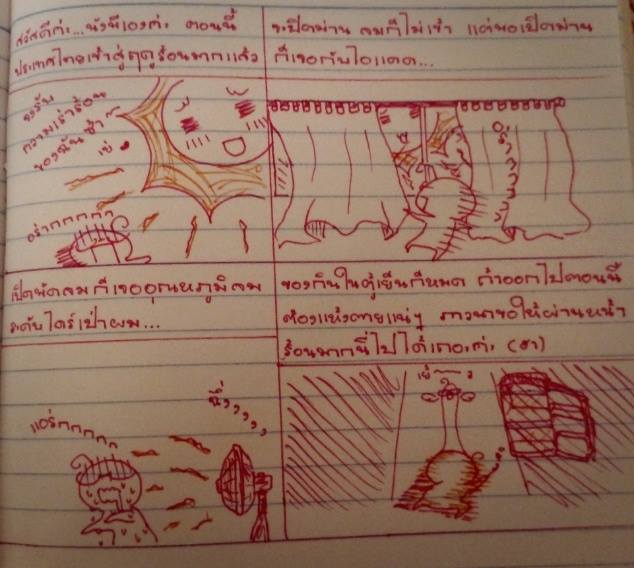 สวัสดีค่ะ...นังพีเองค่ะ ตอนนี้
ประเทศไทยเข้าสู่ฤดูร้อนมากแล้ว
จงรับ
ความเร่าร้อน
ของฉันซ้า~
เซ่
อร๊ากกกกก
จะปิดม่าน ลมก็ไม่เข้า แต่พอเปิดม่าน
ก็เจอกับไอแดด...
เปิดพัดลมก็เจออุณหภูมิลม
ระดับไดร์เป่าผม...
แอร๊กกกกก
ของกินในตู้เย็นก็หมด ถ้าออกไปตอนนี้
ต้องแห้งตายแน่ๆ ภาวนาขอให้ผ่านหน้า
ร้อนมากนี่ไปได้เถอะค่ะ (ฮา)